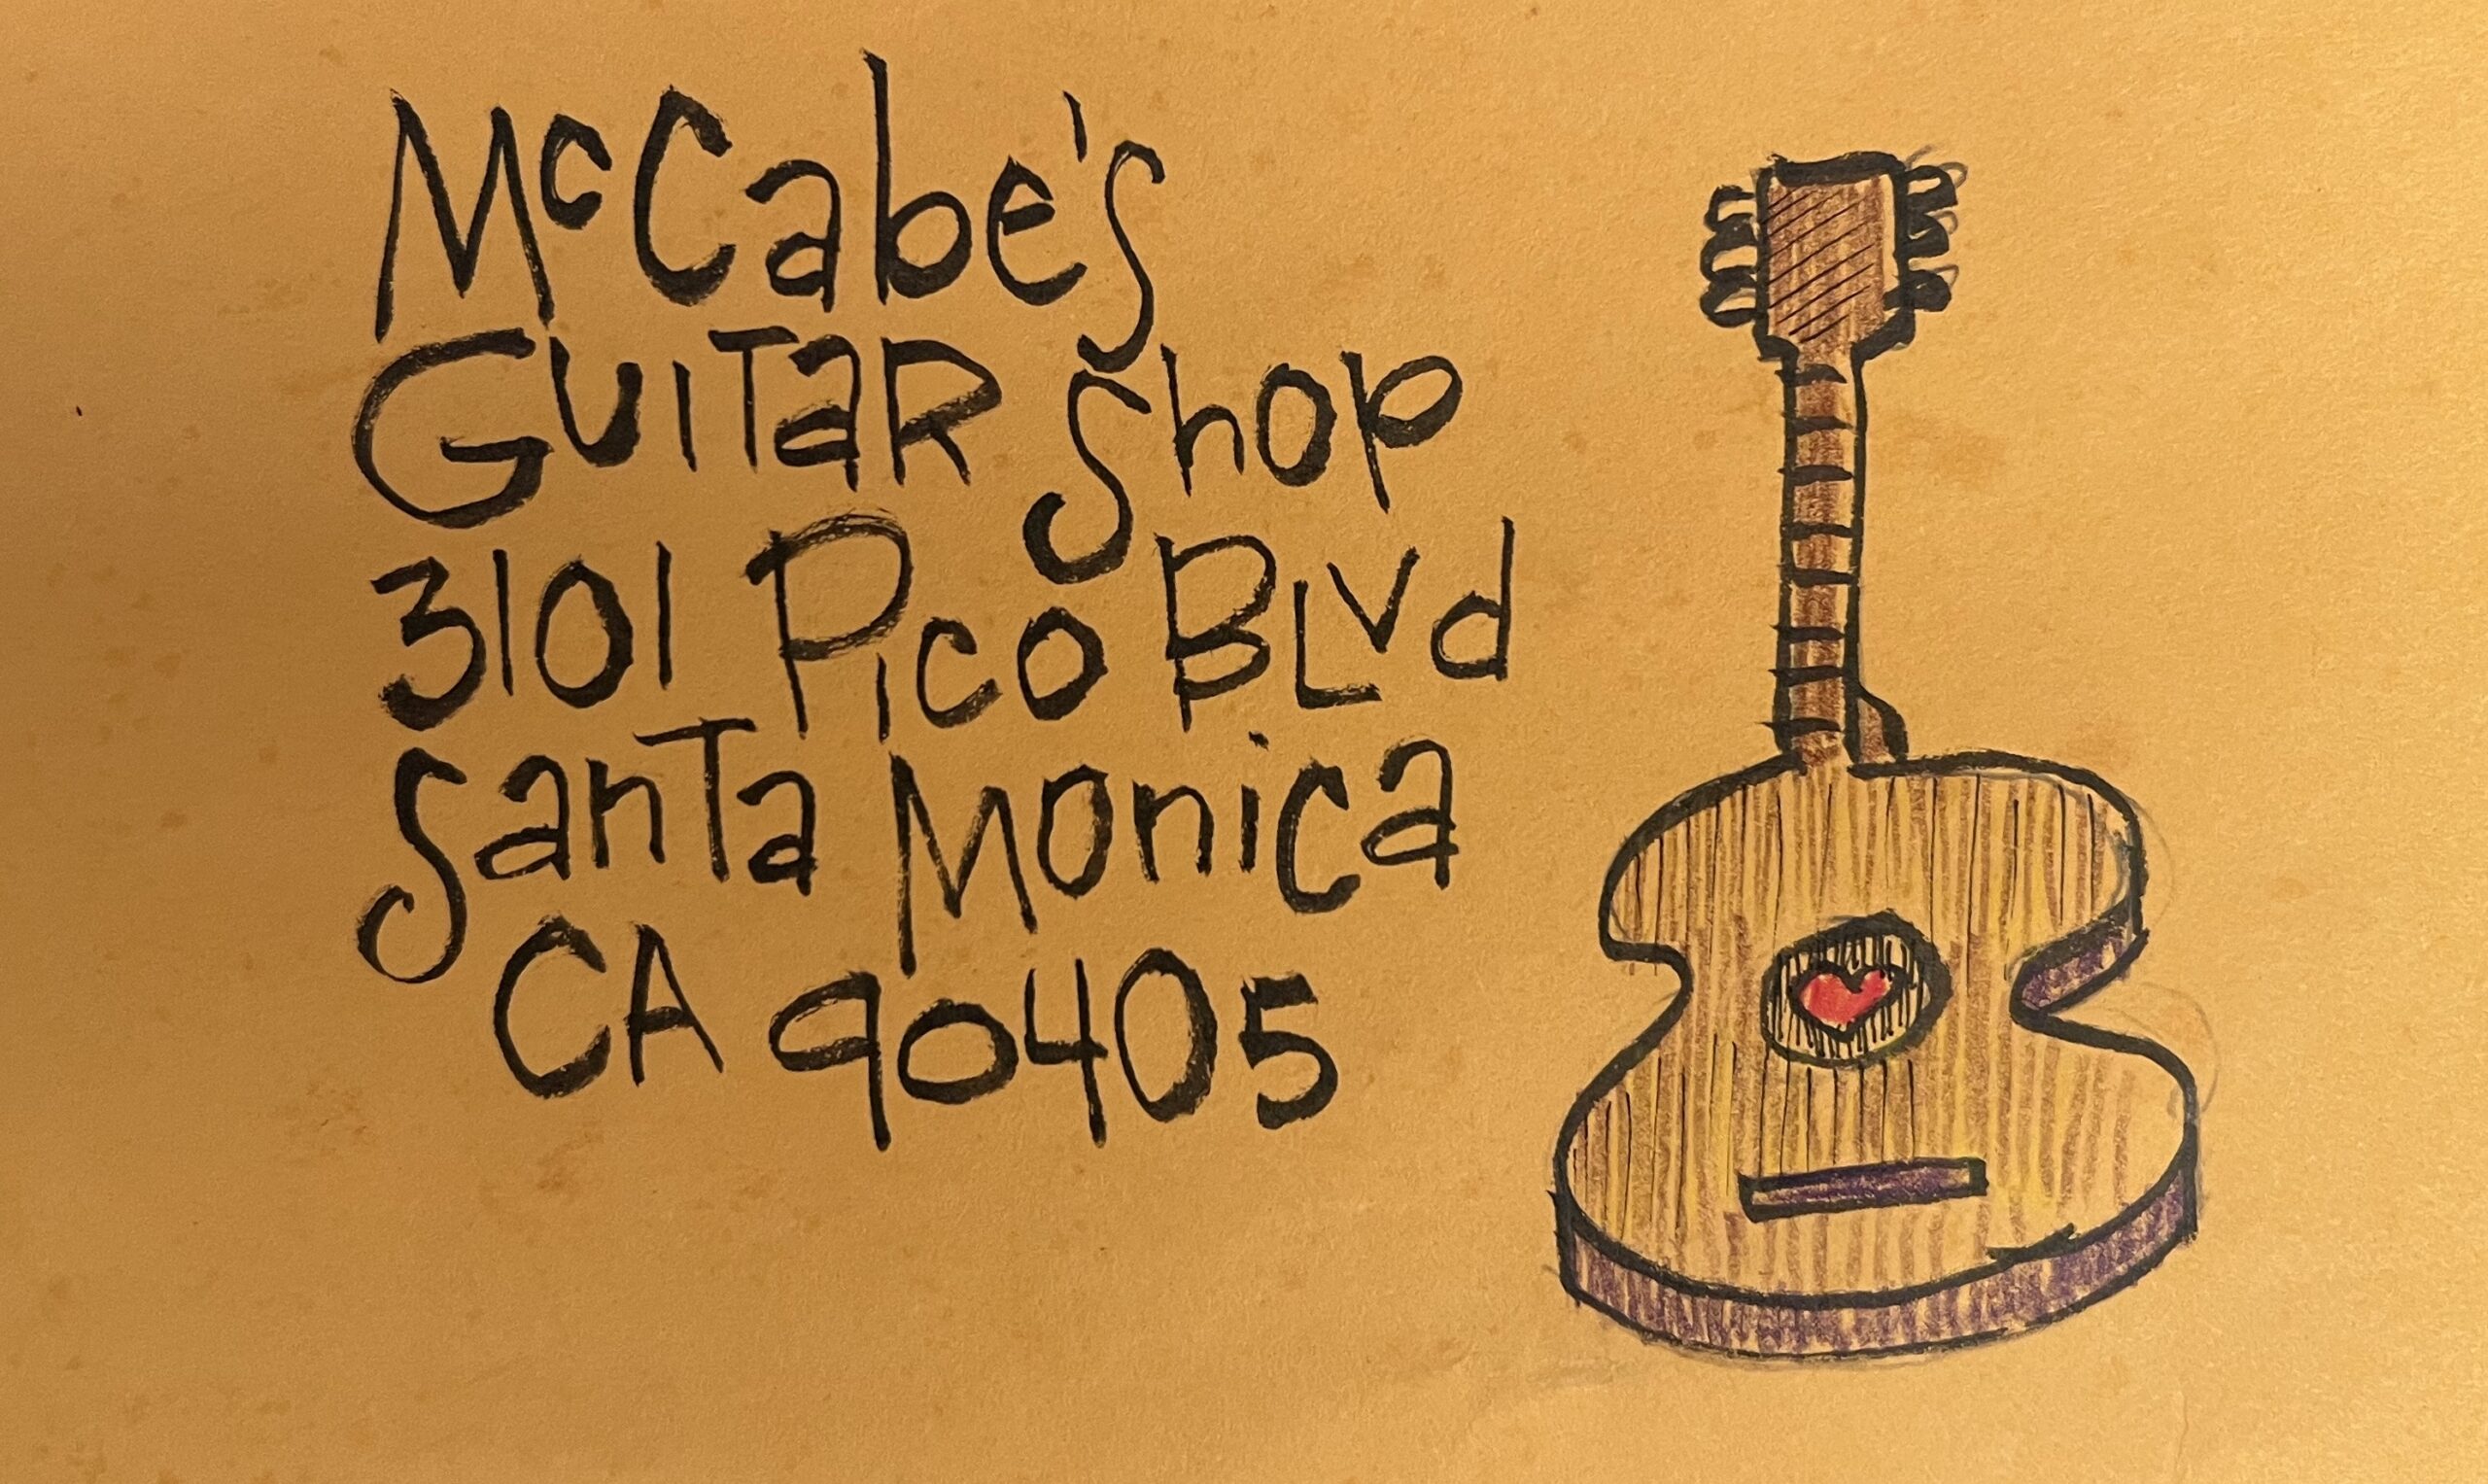 McCabe's
GuitaR Shop
3101 Pico BLvd
SanTa Monica
CA 90405